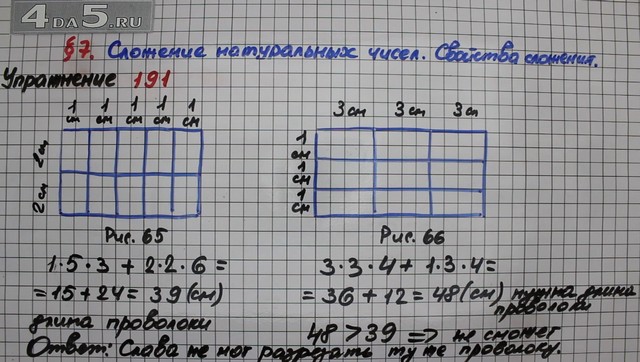 4DA5.RU
§7. Сложение натуральных чисел. Свойства сложения.
Упражнение 191
1 см 1 см 1 см 1 см 1 см
2 см
2 см
3 см 3 см 3 см
1 см
1 см
1 см
Рис. 65
Рис. 66
1·5·3 + 2·2·6 =
= 15 + 24 = 39 (см)
длина проволоки
3·3·4 + 1·3·4 =
= 36 + 12 = 48 (см) нужна длина проволоки
48 > 39 => не сможет
Ответ: Слава не мог разрезать ту же проволоку.